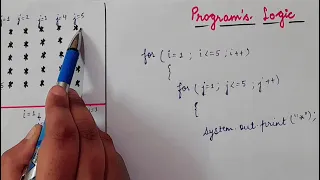 Program's Logic
j=1 j=4 j=5
* * * * *
* * * * *
* * * * *
* * * * *
* * * * *
for (i=1 ; i<=5 ; i++)
{
for (j=1 ; j<=5 ; j++)
{
System.out.print("*");
i=1